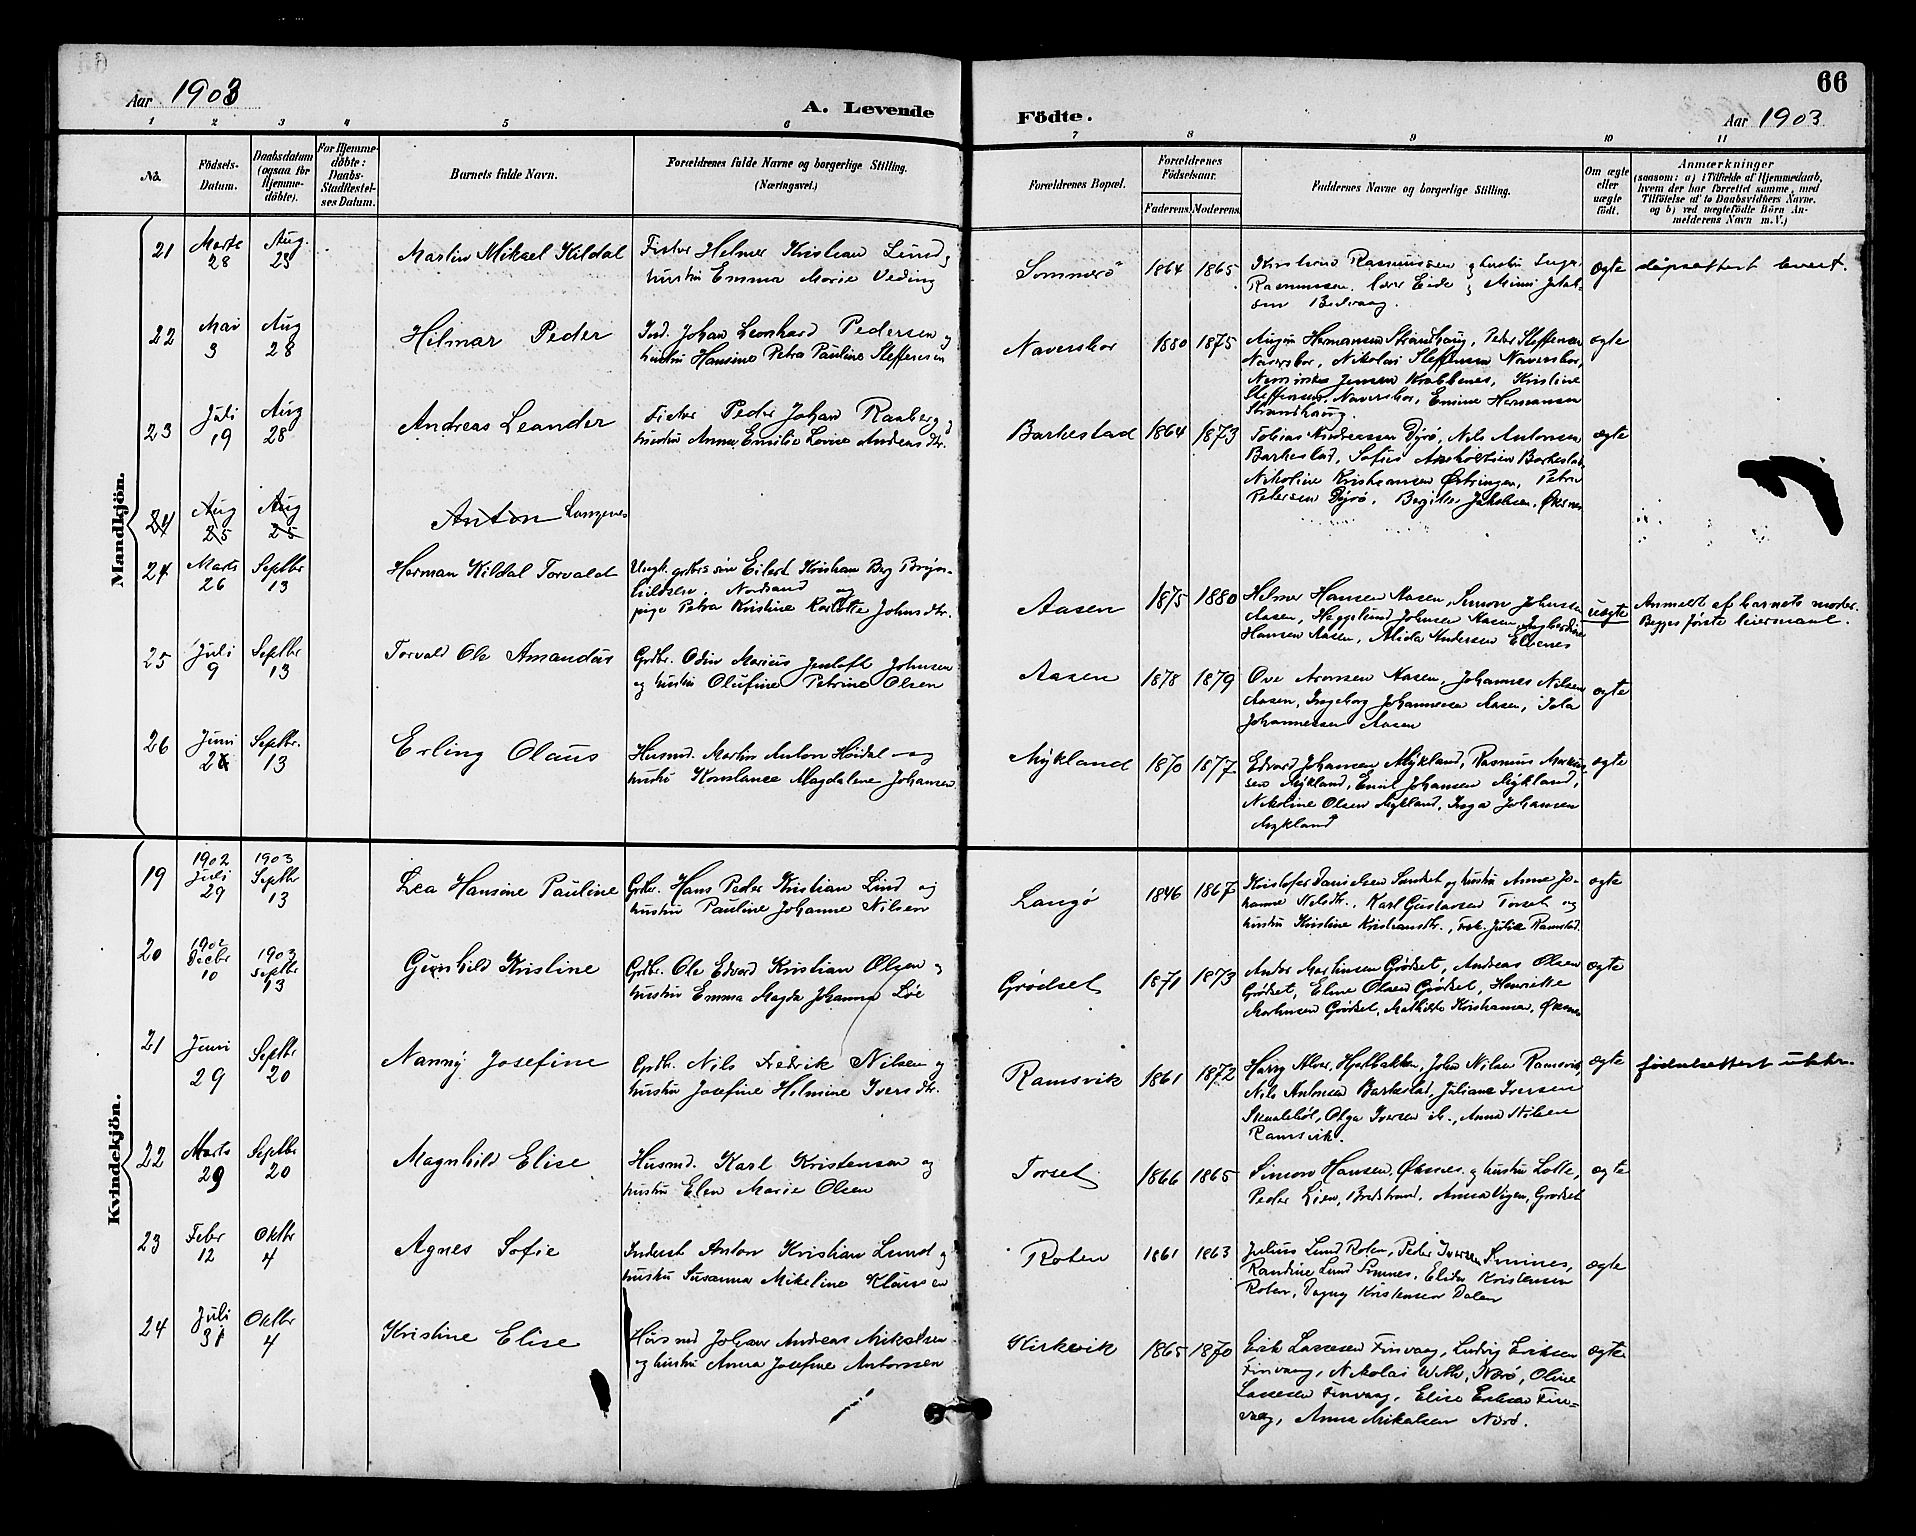 Aar 1903
A. Levende
Födte.
66
Aar 1903
1 2 3 4 5 6 7 8 9 10 11
No.
Födsels-
Datum.
Daabsdatum
(ogsaa for
Hjemme-
döbte).
For Hjemme-
döbte:
Daabs-
Stadfæstel-
ses Datum.
Barnets fulde Navn.
Forældrenes fulde Navne og borgerlige Stilling.
(Næringsvei.)
Forældrenes Bopæl.
Forældrenes
Födselsaar.
Faderens. Moderens.
Faddernes Navne og borgerlige Stilling.
Om ægte
eller
uægte
født.
Anmærkninger
(saasom: a) i Tilfælde af Hjemmedaab,
hvem der har forrettet samme, med
Tilföielse af to Daabsvidners Navne.
og b) ved uægtefödte Börn An-
melderens Navn m. V.)
Mandkjön.
21 Marts 28 Aug. 23 Martin Mikael Kildal
Fisker Helmer Kristian Lund og
hustru Emma Marie Veding
Sommerö 1864 1865
Kristian Rasmussen og hustru Inga
Rasmussen
ægte
dåpsattest levert.
22 Mai 3 Aug 28 Hilmar Peder
Ind. Johan Leonhard Pedersen og
hustru Hansine Petra Pauline Steffensen
Naverskor 1880 1875
Hermansen Strandhaug, Peder Steffensen
Naverskor, Nikolai Steffensen Naverskor,
Jensen Krabbenes, Kristine
Steffensen Naverskor, Emine Hermansen
Strandhaug.
ægte
23 Juli 19 Aug 28 Andreas Leander
Fisker Peder Johan Raaberg,
hustru Anna Emilie Lovise Andreasdtr.
Barkestad 1864 1873
Tobias Andreassen Dyrö, Nils Antonsen
Barkestad, Sofie Barkestad
Nikoline Kristiansen Østringen, Petra
Petersen Dyrö, Jakobsen, Øksnes
ægte
24 Aug 25 Aug 25 Anton Langenes
24 Marts 26 Septbr 13 Herman Kildal Torvald
Ungk. grdbrs sön Eilert Kristian Berg Bryn-
hildsen, Nordsand og
pige Petra Kristine Karlotte Johnsdtr.
Aasen 1875 1880
Helmer Hansen Aasen, Simon Johnsen
Aasen, Hagglund Johnsen Aasen, Ingeborg
Hansen Aasen, Alida Andersen Elvenes
uægte
Anmeldt af barnets moder.
Begges første leiermaal.
25 Juli 9 Septbr 13 Torvald Ole Amandus
Grdbr. Odin Marius Jentoft Johnsen
og hustru Olufine Petrine Olsen
Aasen 1878 1879
Ove Aronsen Aasen, Johannes Nilsen
Aasen, Ingeborg Johannessen Aasen,
Johannessen Aasen
ægte
26 Juni Septbr. 13 Erling Olaus
Husmd. Martin Anton Høidal og
hustru Konstance Magdalene Johansen
Mÿkland 1870 1877
Edvard Johansen Mÿkland, Rasmus Markus-
sen Mÿkland, Emil Johansen Mÿkland,
Nikoline Olsen Mÿkland, Inga Johansen
Mÿkland
ægte
Kvindekjön.
19 1902 Juli 29 1903 Septbr 13 Lea Hansine Pauline
Grdbr. Hans Peder Kristian Lind og
hustru Pauline Johanne Nilsen
Langø 1846 1867
Kristofer Danielsen Sandset og hustru Anne Jo-
hanne Nilsdtr., Karl Gustavsen Torset og
hustru Kristine Kristiansdtr., Frk. Julie Ramstad
ægte
20 1902 Decbr 10 1903 Septbr 13 Gunhild Kristine
Grdbr. Ole Edvard Kristian Olsen og
hustru Emma Magda Johanna Löe
Grödset 1871 1873
Andor Martinsen Grödset, Andreas Olsen
Grödset, Eline Olsen Grödset, Henriette
Martinsen Grödset, Mathilde Kristiansen, Øksnes
ægte
21 Juni 29 Septbr 20 Nanny Josefine
Grdbr. Nils Fredrik Nilsen og
hustru Josefine Helmine Iversdtr.
Ramsvik 1861 1872
Harry Alver, Hjellbakken, John Nilsen Ramsvik,
Nils Antonsen Barkestad, Juliane Iversen
Skaalebrö, Olga Iversen ib., Anna Nilsen
Ramsvik.
ægte
fødselsattest utskr.
22 Marts 29 Septbr 20 Magnhild Elise
Husmd. Karl Kristensen og
hustru Elen Marie Olsen
Torset 1866 1865
Simon Hansen, Øksnes og hustru Lotte,
Peder Lien, Bredstrand, Anna Vigen, Grödset
ægte
23 Febr 12 Oktbr 4 Agnes Sofie
Inderst Anton Kristian Lund og
hustru Susanna Mikeline Klausen
Roten 1861 1863
Julius Lund Roten, Peder Iversen Sminnes,
Randine Lund Sminnes, Elida Kristensen
Roten, Dagny Kristensen Dalen
ægte
24 Juli 31 Oktbr 4 Kristine Elise
Husmd Johan Andreas Mikalsen
og hustru Anna Josefine Antonsen
Kirkevik 1865 1870
Erik Lassesen Finvaag, Ludvig Eriksen
Finvaag, Nikolai With, Nærö, Oline
Lassesen Finvaag, Elise Eriksen Fin-
vaag, Anna Mikalsen Nærö.
ægte